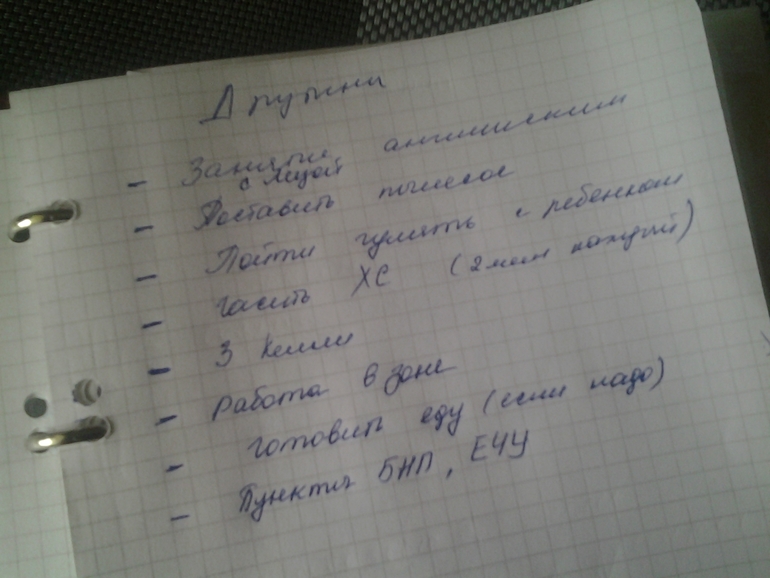 Друтни
- Занятие английским
с Лизой
- Поставить пылесос
- Пойти гулять с ребенком
- гасить ХС (2 мин каждый)
- 3 Келли
- Работа в зоне
- готовить еду (если надо)
- Пункты БНП, ЕЧУ